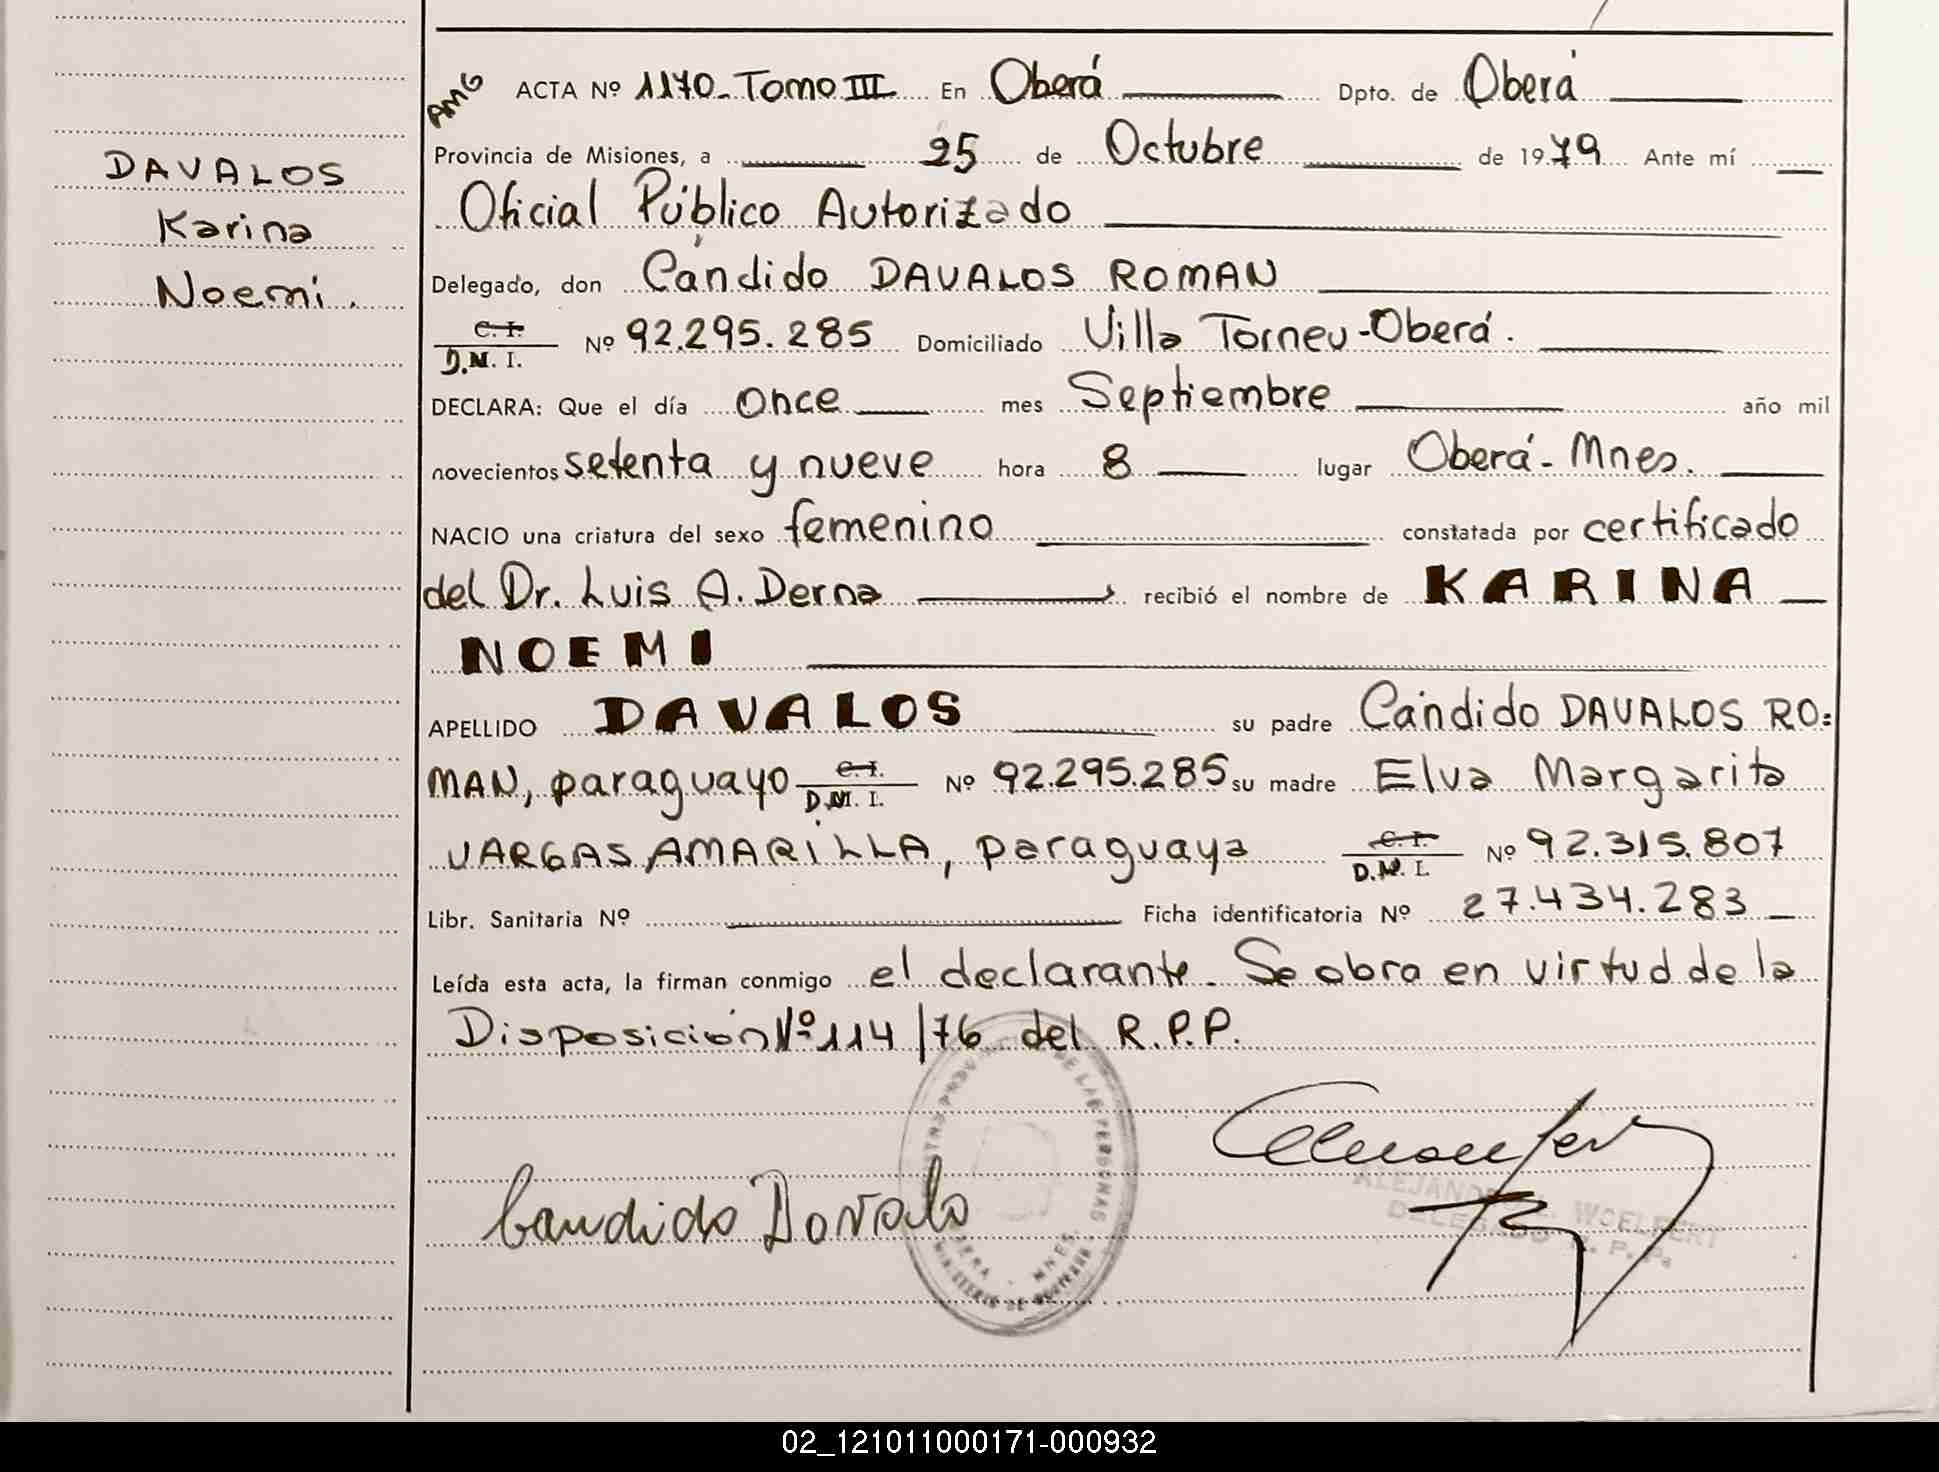 PMG ACTA Nº 1170_Tomo III En Oberá Dpto. de Oberá
Provincia de Misiones, a 25 de Octubre de 1979 Ante mí
Oficial Público Autorizado
Delegado, don Cándido DAVALOS ROMAN
C.I.
D.N.I. Nº 92.295.285 Domiciliado Villa Torneu-Oberá.
DECLARA: Que el día once mes Septiembre año mil
novecientos setenta y nueve hora 8 lugar Oberá-Mnes.
NACIO una criatura del sexo femenino constatada por certificado
del Dr. Luis A. Derna recibió el nombre de KARINA
NOEMI
APELLIDO DAVALOS su padre Cándido DAVALOS RO=
MAN, paraguayo C.I. D.N.I. Nº 92.295.285 su madre Elva Margarita
VARGAS AMARILLA, paraguaya C.I. D.N.I. Nº 92.315.807
Libr. Sanitaria Nº Ficha identificatoria Nº 27.434.283
Leída esta acta, la firman conmigo el declarante. Se obra en virtud de la
Disposición Nº 114/76 del R.P.P.
DAVALOS
Karina
Noemi.
DE LAS PERSONAS
OBERA - MNES.
MINISTERIO DE GOBIERNO
Candido Davalo
WOELFERT
DELEGADO R. P. P.
02_121011000171-000932